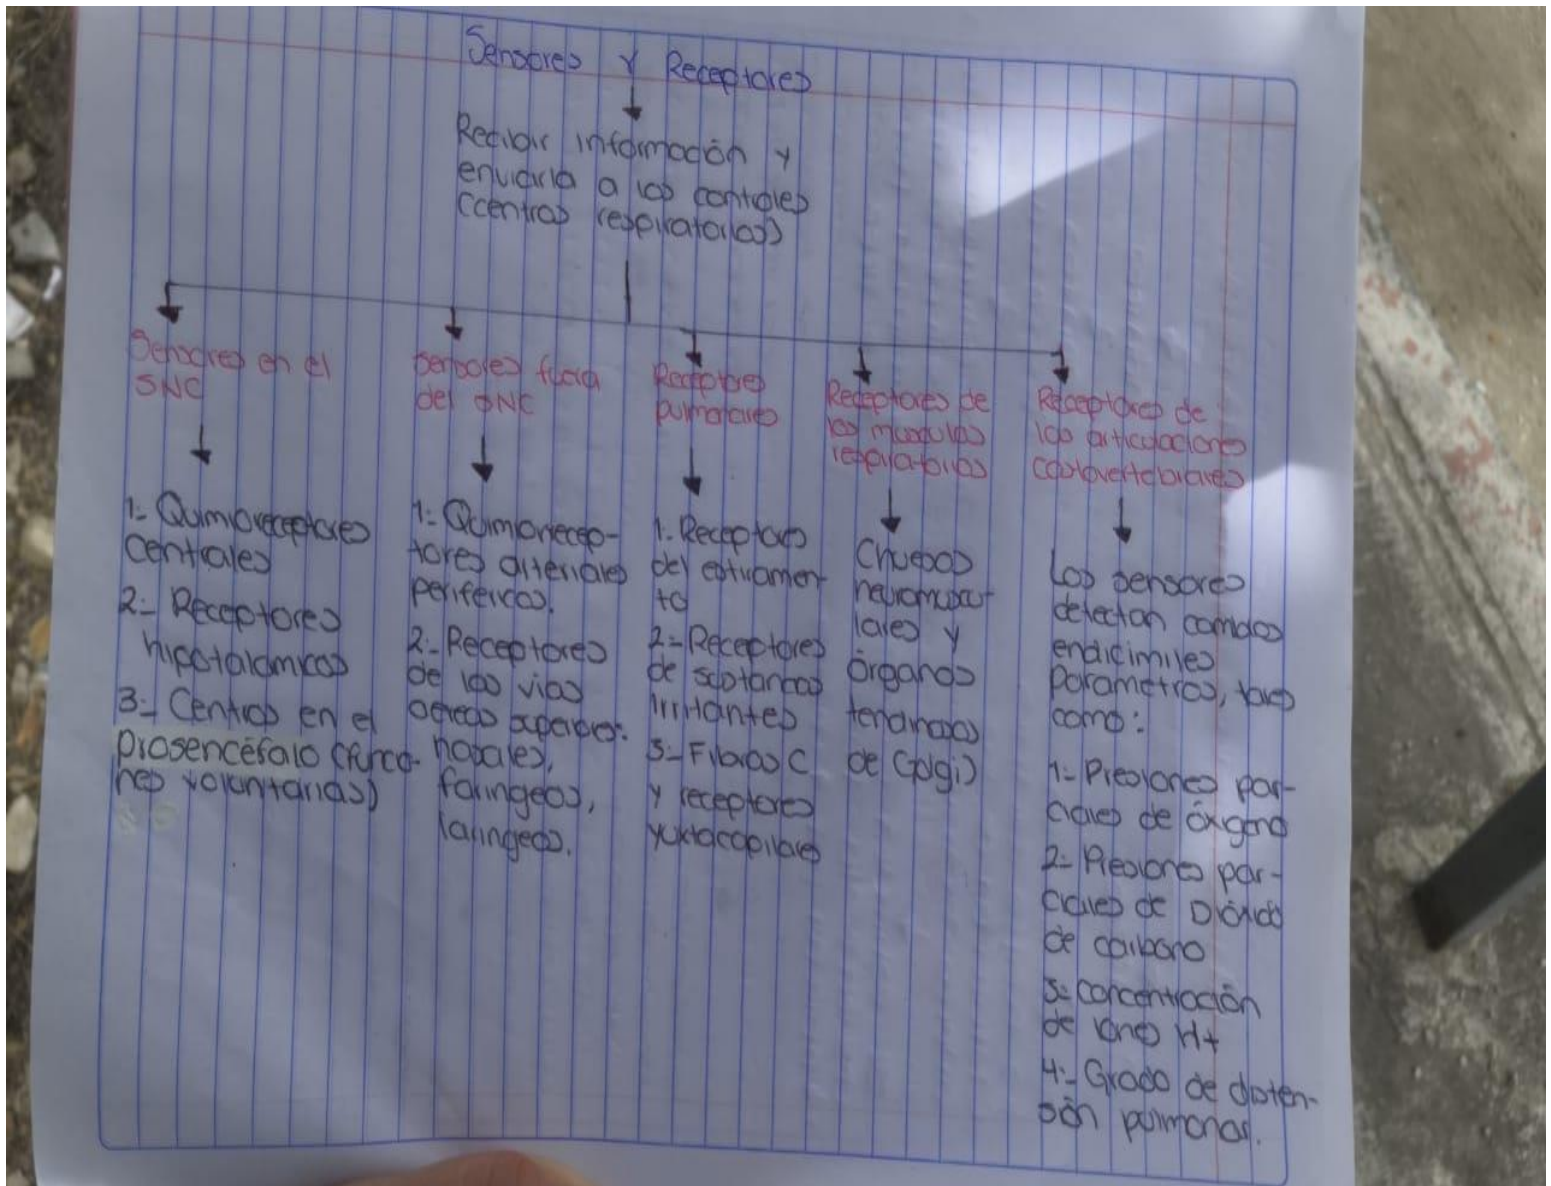 Sensores y Receptores
Recibir información y
enviarla a los controles
(centros respiratorios)
Sensores en el
SNC
1.- Quimioreceptores
Centrales
2.- Receptores
hipotalamicos
3.- Centros en el
prosencéfalo (funcio-
nes voluntarias)
Sensores fuera
del SNC
1.- Quimiorecep-
tores arteriales
perifericos.
2.- Receptores
de las vias
aereas superiores:
nasales,
faringeos,
laringeos.
Receptores
pulmonares
1.- Receptores
del estiramien-
to
2.- Receptores
de sustancias
irritantes
3.- Fibras C
y receptores
yuxtacapilares
Receptores de
los musculos
respiratorios
(husos
neuromuscu-
lares y
órganos
tendinosos
de Golgi)
Receptores de
las articulaciones
costovertebrales
Los sensores
detectan cambios
en
parametros, tales
como:
1.- Presiones par-
ciales de óxigeno
2.- Presiones par-
ciales de Dióxido
de carbono
3.- Concentración
de iones H+
4.- Grado de disten-
sión pulmonar.